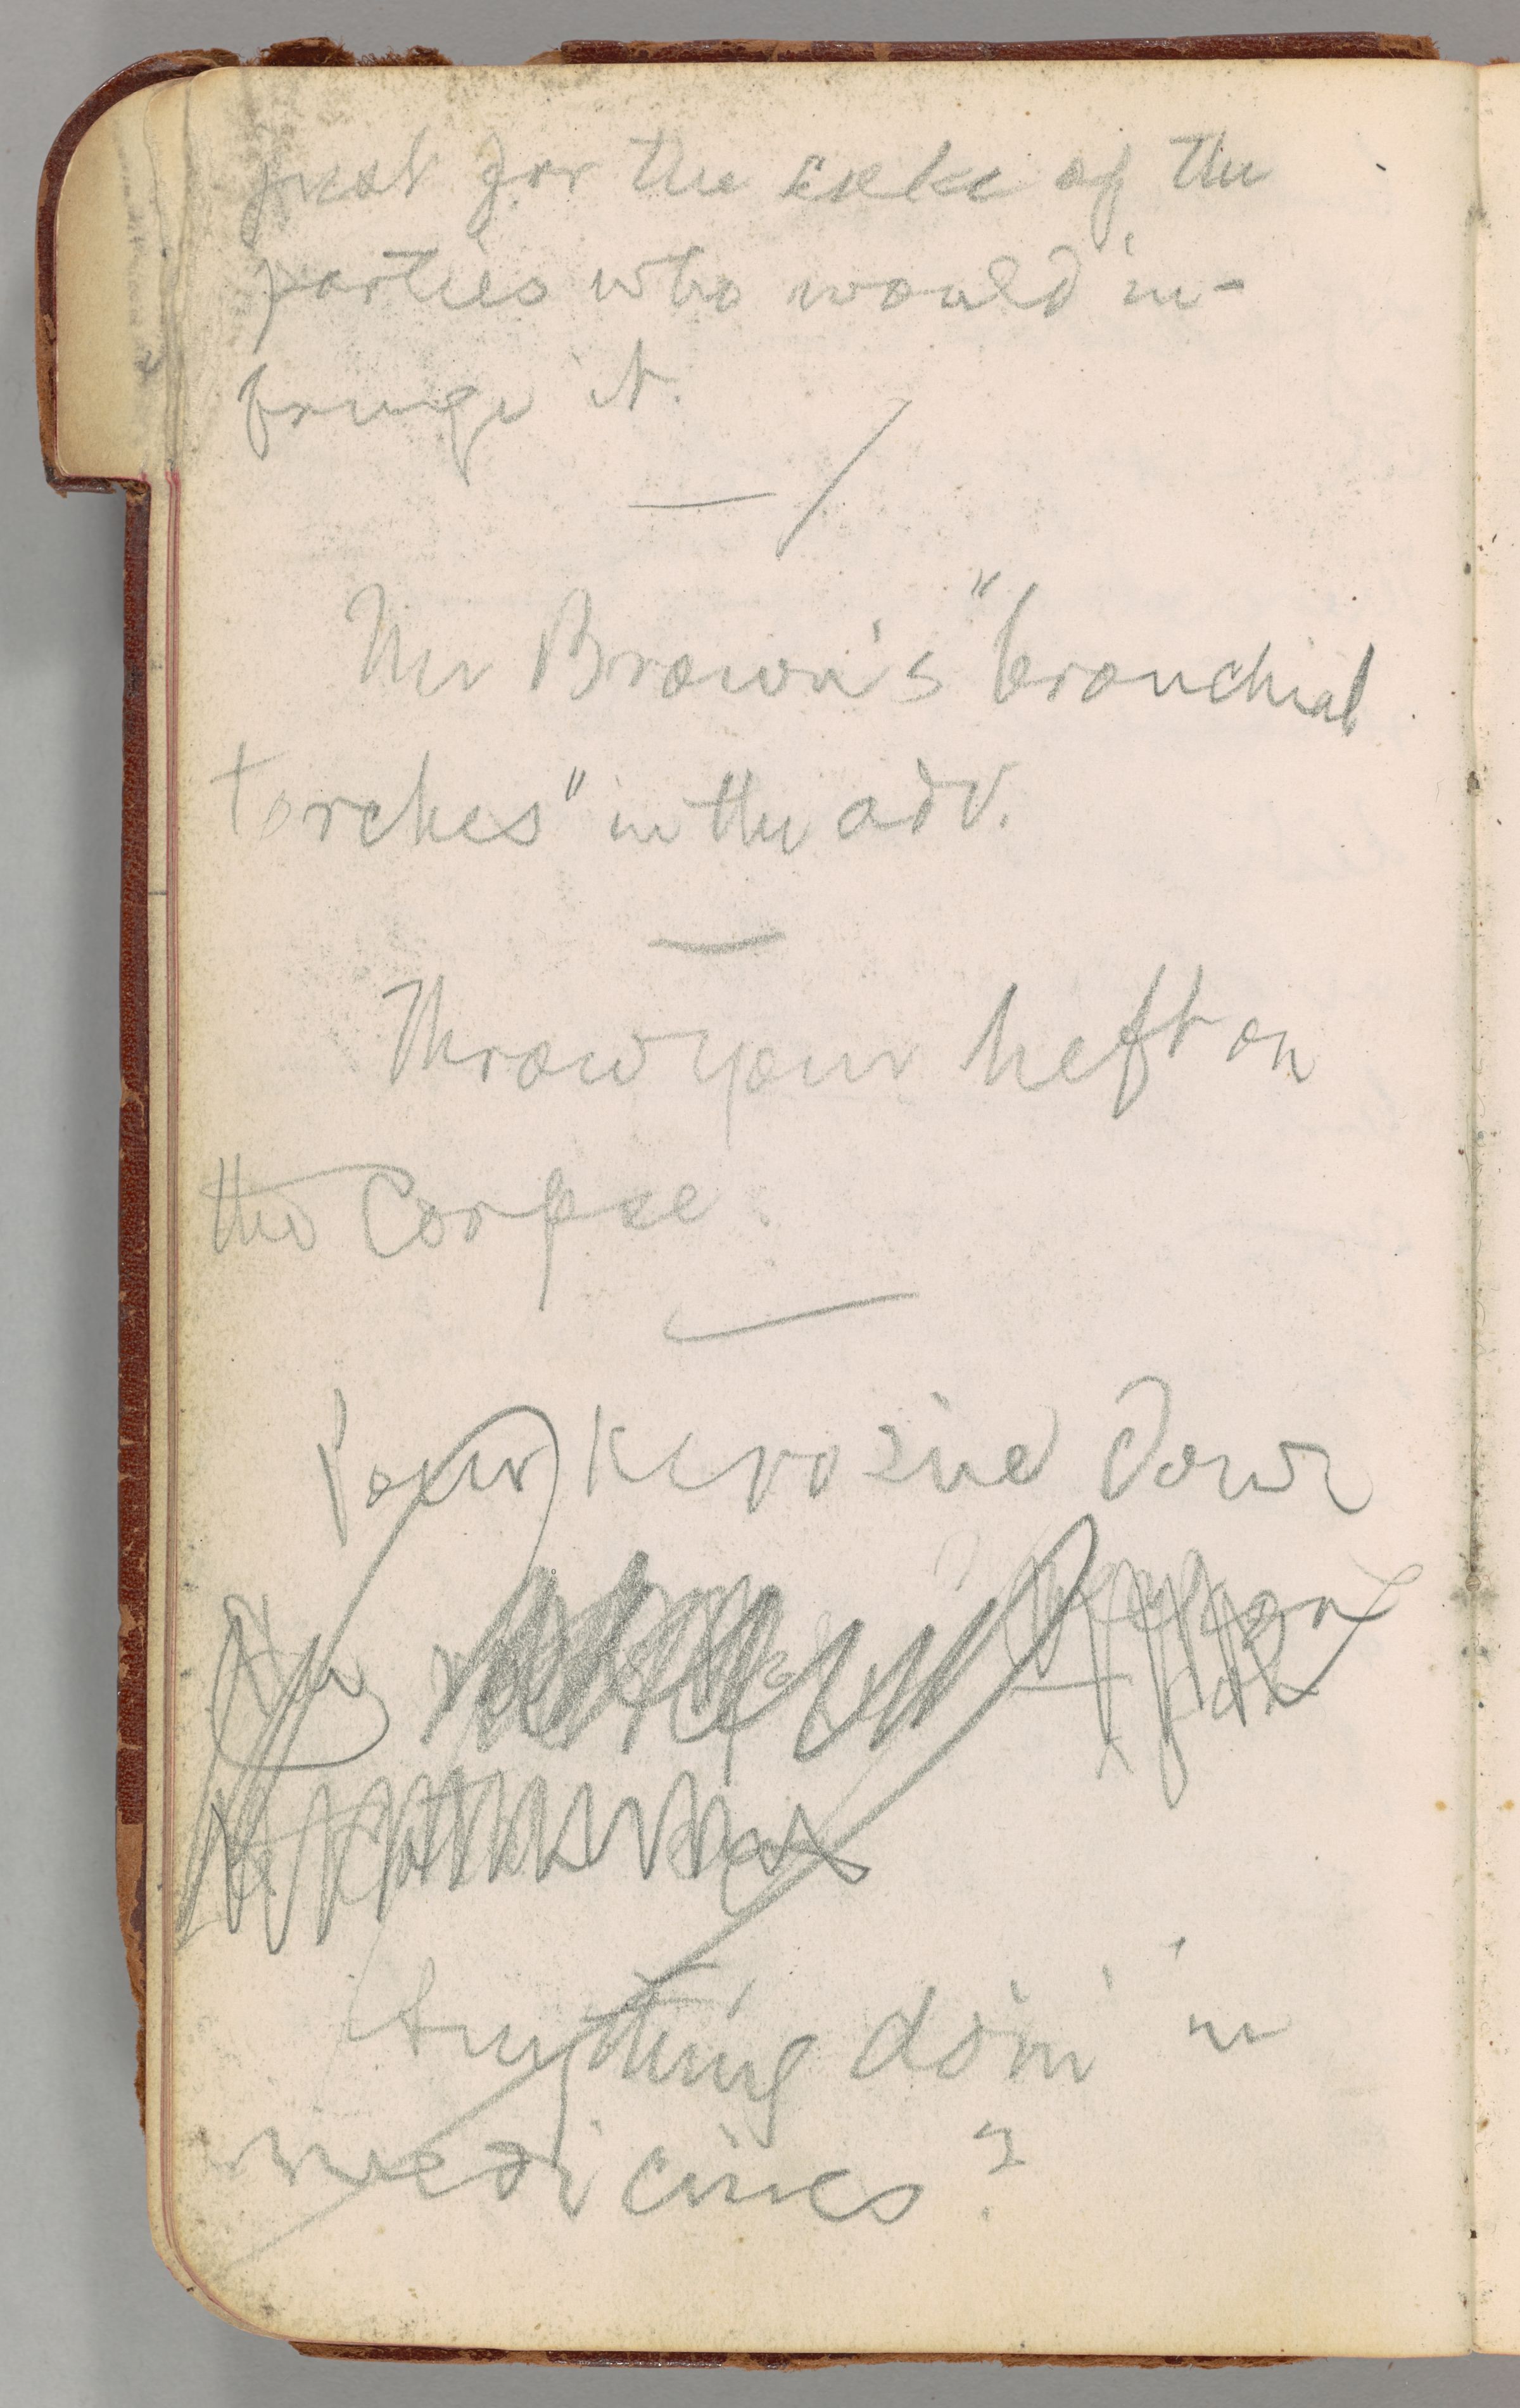 just for the sake of the
parties who would in-
fringe it.
Mr Brown's "bronchial
torches" in the adv.
Throw your heft on
the Corpse.
Pour kerosine down
the
Anything doin' in
medicines?